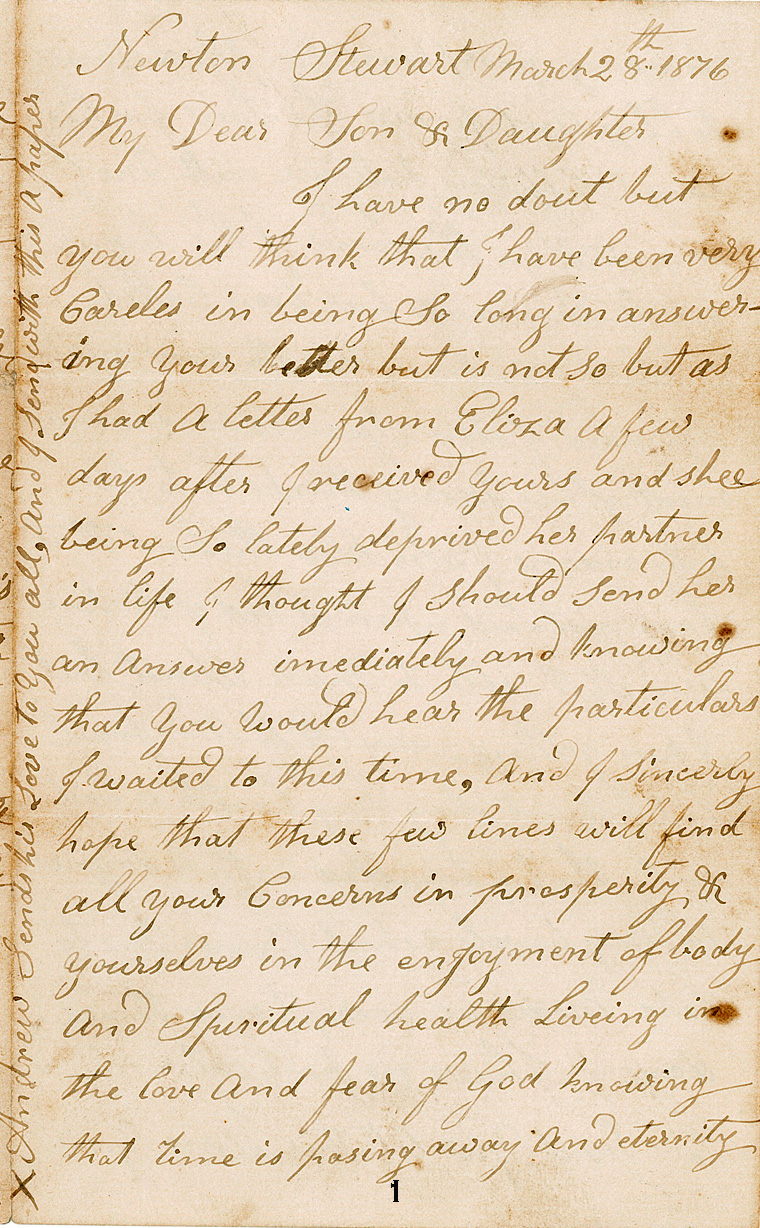 Newton Stewart March 28th. 1876
My Dear Son & Daughter
I have no dout but
you will think that I have been very
Careles in being So long in answer-
ing your letter but is not so but as
I had A letter from Eliza A few
days after I received yours and shee
being So lately deprived her partner
in life I thought I should send her
an Answer imediately and knowing
that you would hear the particulars
I waited to this time, And I sincerly
hope that these few lines will find
all your Concerns in prosperity &
yourselves in the enjoyment of body
And Spiritual health Liveing in
the love And fear of God knowing
that time is pasing away And eternity
1
x Andrew Sends his Love to You all, And I Send with this A paper